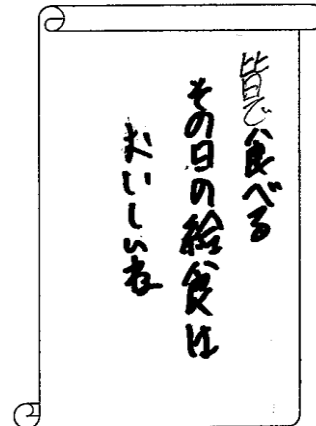 皆で食べる
その日の給食は
おいしいね